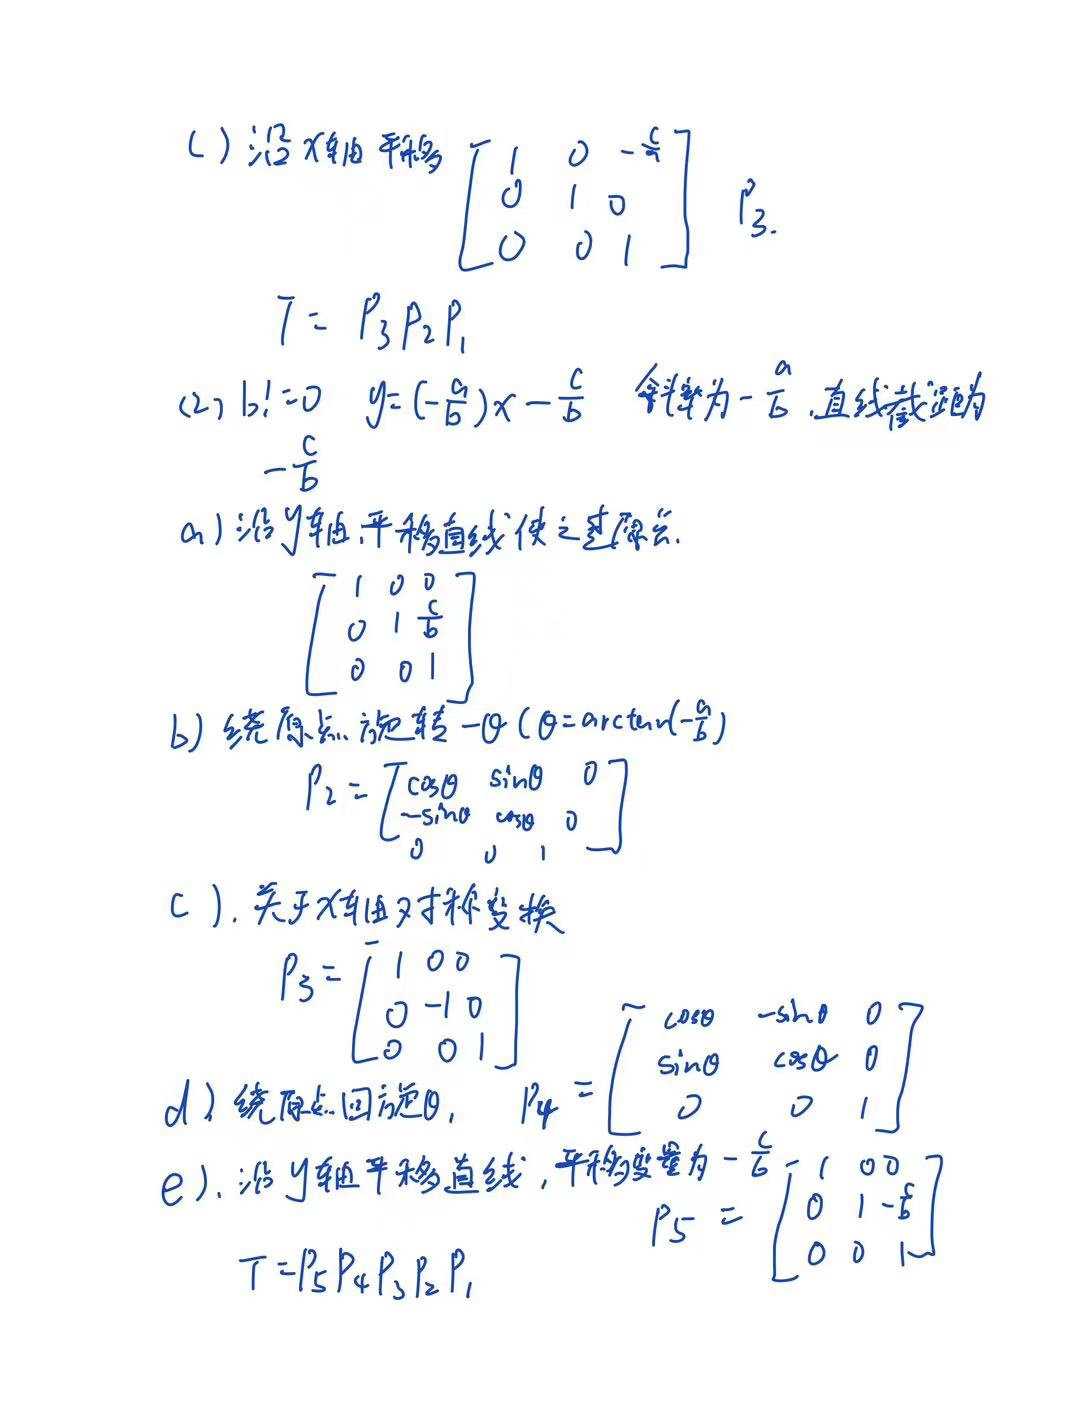 c) 沿x轴平移 [1 0 -c/a
0 1 0
0 0 1] P3.
T = P3P2P1
(2) b!=0 y=(-a/b)x-c/b 斜率为-a/b,直线截距为
-c/b
a) 沿y轴平移直线使之过原点.
[1 0 0
0 1 c/b
0 0 1]
b) 绕原点旋转-θ (θ=arctan(-a/b)
P2= [cosθ sinθ 0
-sinθ cosθ 0
0 0 1]
c). 关于x轴对称变换
P3= [1 0 0
0 -1 0
0 0 1]
d) 绕原点回旋θ, P4= [cosθ -sinθ 0
sinθ cosθ 0
0 0 1]
e). 沿y轴平移直线,平移变量为-c/b
P5= [1 0 0
0 1 -c/b
0 0 1]
T=P5P4P3P2P1